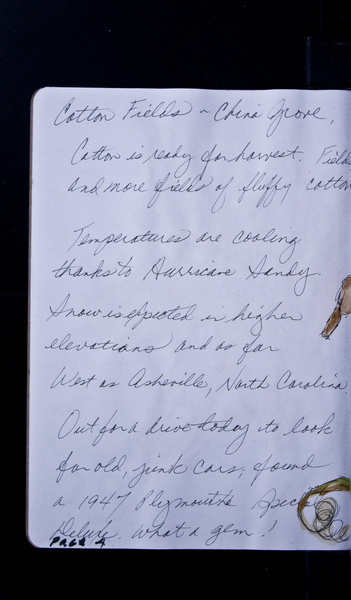 Cotton Fields ~ China Grove,
Cotton is ready for harvest. Fields
and more fields of fluffy cotton
Temperatures are cooling
thanks to Hurricane Sandy.
Snow is expected in higher
elevations and as far
West as Asheville, North Carolina.
Out for a drive today to look
for old, junk cars; found
a 1947 Plymouth Special
Deluxe. What a gem!
PAGE 4